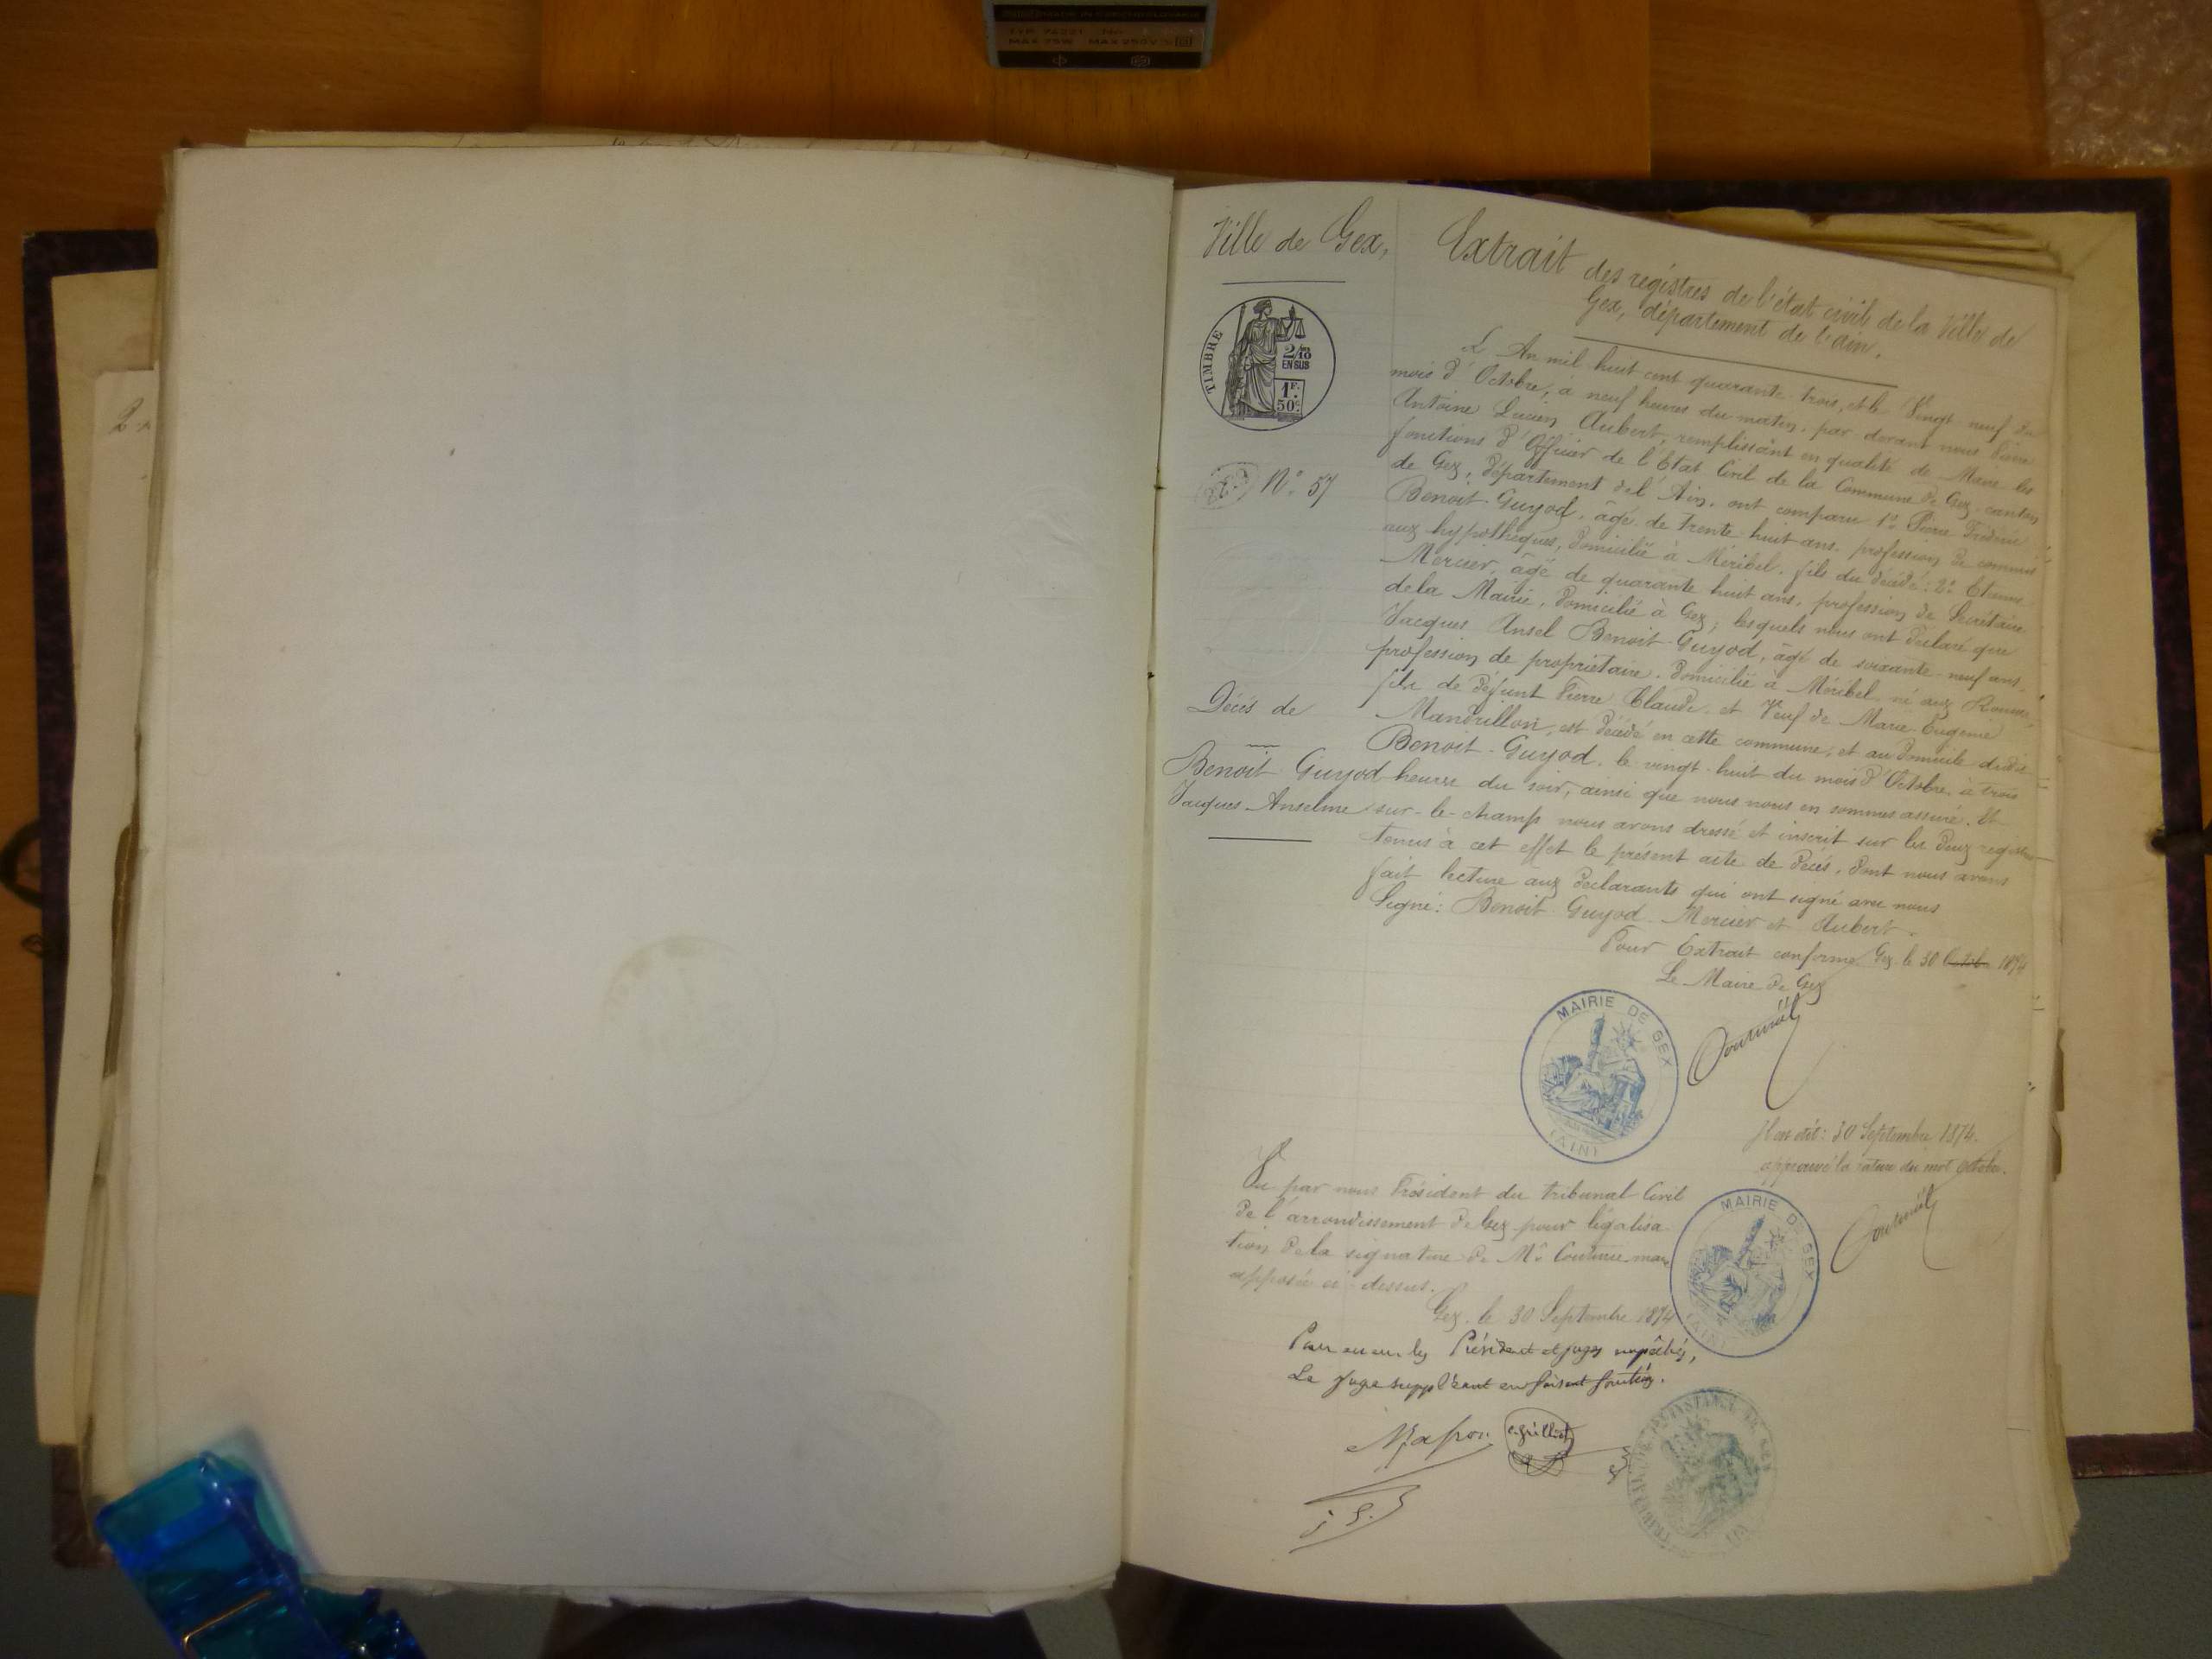 TYP 74321 No
MAX 75W MAX 250V
Ville de Gex,
TIMBRE
2/10
EN SUS
1F.
50c.
No. 57
Décès de
Benoit Guyod
Jacques Anselme
Extrait
des registres de l'état civil de la Ville de
Gex, département de l'ain.
L'An mil huit cent quarante trois, et le Vingt neuf du
mois d'Octobre, à neuf heures du matin, par devant nous Pierre
Antoine Lucien Aubert, remplissant en qualité de Maire les
fonctions d'Officier de l'Etat Civil de la Commune de Gex, canton
de Gex, département de l'Ain, ont comparu 1o Pierre Frédéric
Benoit-Guyod, âgé de trente huit ans, profession de commis
aux hypothèques, domicilié à Méribel, fils du décédé; 2o Etienne
Mercier, âgé de quarante huit ans, profession de Secrétaire
de la Mairie, domicilié à Gex; lesquels nous ont déclaré que
Jacques Ansel Benoit-Guyod, âgé de soixante-neuf ans,
profession de propriétaire, domicilié à Méribel né aux
fils de défunt Pierre Claude et Veuf de Marie Eugénie
Mandrillon, est décédé en cette commune, et au domicile dudit
Benoit-Guyod, le vingt-huit du mois d'Octobre, à trois
heures du soir, ainsi que nous nous en sommes assuré. Et
sur-le-champ nous avons dressé et inscrit sur les deux registres
tenus à cet effet le présent acte de décès, dont nous avons
fait lecture aux déclarants qui ont signé avec nous
Signé: Benoit-Guyod. Mercier et Aubert.
Pour Extrait conforme. Gex, le 30 Octobre 1874
Le Maire de Gex
MAIRIE DE GEX
(AIN)
30 Septembre 1874.
approuvé la rature du mot Octobre.
MAIRIE DE GEX
(AIN)
Vu par nous Président du tribunal Civil
de l'arrondissement de Gex pour légalisa-
tion de la signature de Mr. Couturier maire
apposée ci-dessus.
Gex, le 30 Septembre 1874
Président et juges empêchés,
Le juge suppléant en faisant fonction.